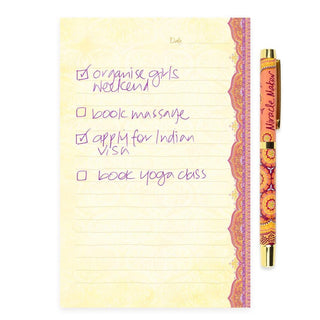 Date
organise girls
weekend
book massage
apply for Indian
visa
book yoga class
Miracle Maker